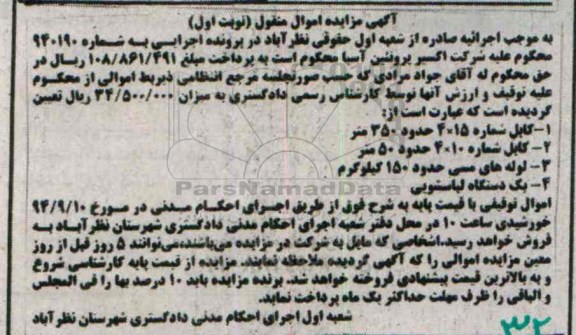 آگهی مزایده اموال منقول (نوبت اول)
به موجب اجرائیه صادره از شعبه اول حقوقی نظرآباد در پرونده اجرایی به شماره ۹۴۰۱۹۰
محکوم علیه شرکت اکسیر پروتئین آسیا محکوم است به پرداخت مبلغ ۱۰۸/۸۶۱/۴۹۱ ریال در
حق محکوم له آقای جواد مرادی که حسب صورتجلسه مرجع انتظامی ذیربط اموالی از محکوم
علیه توقیف و ارزش آنها توسط کارشناس رسمی دادگستری به میزان ۳۴/۵۰۰/۰۰۰ ریال تعیین
گردیده است که عبارت است از:
۱-کابل شماره ۱۵*۴ حدود ۳۵۰ متر
۲- کابل شماره ۱۰*۴ حدود ۵۰ متر
۳- لوله های مسی حدود ۱۵۰ کیلوگرم
۴- یک دستگاه لباسشویی
اموال توقیفی با قیمت پایه به شرح فوق از طریق اجرای احکام مدنی در مورخ ۹۴/۹/۱۰
خورشیدی ساعت ۱۰ در محل دفتر شعبه اجرای احکام مدنی دادگستری شهرستان نظرآباد به
فروش خواهد رسید.اشخاصی که مایل به شرکت در مزایده می‌باشند،می‌توانند ۵ روز قبل از روز
معین مزایده اموالی را که آگهی گردیده ملاحظه نمایند. مزایده از قیمت پایه کارشناسی شروع
و به بالاترین قیمت پیشنهادی فروخته خواهد شد. برنده مزایده باید ۱۰ درصد بها را فی المجلس
و الباقی را ظرف مهلت حداکثر یک ماه پرداخت نماید.
شعبه اول اجرای احکام مدنی دادگستری شهرستان نظرآباد
۳۲
ParsNamadData